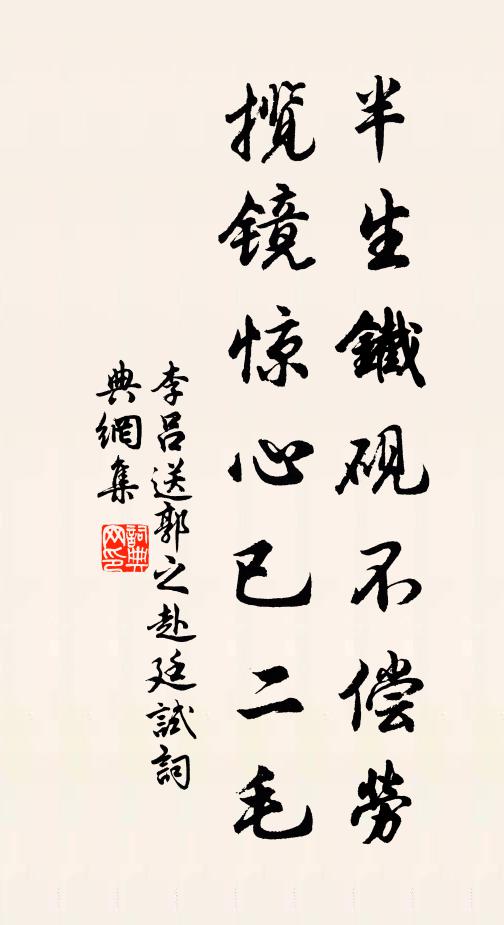 半生鐵硯不偿勞
揽镜惊心已二毛
李呂送郭之赴廷試詞
典網集
詞典
网印